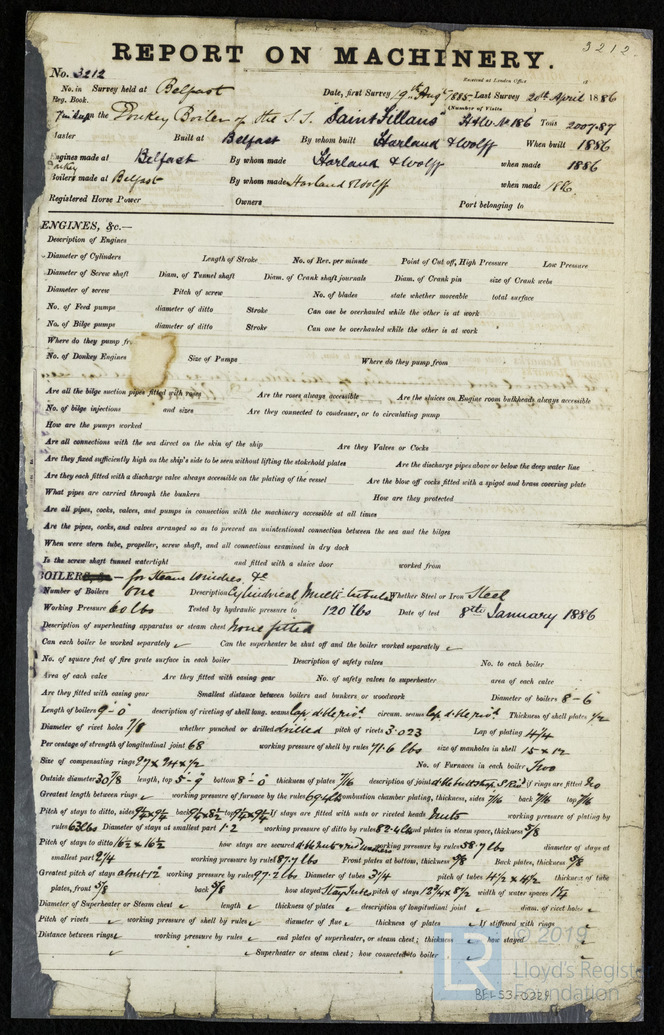 3212
REPORT ON MACHINERY.
No. 3212
Received at London Office 18
No. in Survey held at Belfast Date, first Survey 19th Augt 1885 Last Survey 20th April 1886
Reg. Book. (Number of Visits
on the Donkey Boiler of the S.S. "Saint Fillans" H&W No 186 Tons 2007.87
Master Built at Belfast By whom built Harland & Wolff When built 1886
Engines made at Belfast By whom made Harland & Wolff when made 1886
Donkey
Boilers made at Belfast By whom made Harland & Wolff when made 1886
Registered Horse Power Owners Port belonging to
ENGINES, &c.—
Description of Engines
Diameter of Cylinders Length of Stroke No. of Rev. per minute Point of Cut off, High Pressure Low Pressure
Diameter of Screw shaft Diam. of Tunnel shaft Diam. of Crank shaft journals Diam. of Crank pin size of Crank webs
Diameter of screw Pitch of screw No. of blades state whether moveable total surface
No. of Feed pumps diameter of ditto Stroke Can one be overhauled while the other is at work
No. of Bilge pumps diameter of ditto Stroke Can one be overhauled while the other is at work
Where do they pump fr
No. of Donkey Engines Size of Pumps Where do they pump from
Are all the bilge suction pipes fitted with roses Are the roses always accessible Are the sluices on Engine room bulkheads always accessible
No. of bilge injections and sizes Are they connected to condenser, or to circulating pump
How are the pumps worked
Are all connections with the sea direct on the skin of the ship Are they Valves or Cocks
Are they fixed sufficiently high on the ship's side to be seen without lifting the stokehold plates Are the discharge pipes above or below the deep water line
Are they each fitted with a discharge valve always accessible on the plating of the vessel Are the blow off cocks fitted with a spigot and brass covering plate
What pipes are carried through the bunkers How are they protected
Are all pipes, cocks, valves, and pumps in connection with the machinery accessible at all times
Are the pipes, cocks, and valves arranged so as to prevent an unintentional connection between the sea and the bilges
When were stern tube, propeller, screw shaft, and all connections examined in dry dock
Is the screw shaft tunnel watertight and fitted with a sluice door worked from
BOILERS, &c.— for Steam Winches, &c
Number of Boilers One Description Cylindrical Multitubular Whether Steel or Iron Steel
Working Pressure 60 lbs Tested by hydraulic pressure to 120 lbs Date of test 8th January 1886
Description of superheating apparatus or steam chest None fitted
Can each boiler be worked separately ✓ Can the superheater be shut off and the boiler worked separately ✓
No. of square feet of fire grate surface in each boiler Description of safety valves No. to each boiler
Area of each valve Are they fitted with easing gear No. of safety valves to superheater area of each valve
Are they fitted with easing gear Smallest distance between boilers and bunkers or woodwork Diameter of boilers 8'-6"
Length of boilers 9'-0" description of riveting of shell long. seams lap dble rivd. circum. seams lap dble rivd. Thickness of shell plates 1/2
Diameter of rivet holes 7/8 whether punched or drilled drilled pitch of rivets 3.023 Lap of plating 4 3/4
Per centage of strength of longitudinal joint 68 working pressure of shell by rules 71.6 lbs size of manholes in shell 15 x 12
Size of compensating rings 27 x 24 x 1/2 No. of Furnaces in each boiler Two
Outside diameter 30 7/8 length, top 5'-9" bottom 8'-0" thickness of plates 7/16 description of joint if rings are fitted No
Greatest length between rings ✓ working pressure of furnace by the rules 69.4 lbs combustion chamber plating, thickness, sides 7/16 back 7/16 top 7/16
Pitch of stays to ditto, sides back top If stays are fitted with nuts or riveted heads Nuts working pressure of plating by
rules 63 lbs Diameter of stays at smallest part 1.2 working pressure of ditto by rules 82.4 lbs end plates in steam space, thickness 5/8
Pitch of stays to ditto 16 1/2 x 16 1/2 how stays are secured working pressure by rules 58.7 lbs diameter of stays at
smallest part 2 1/4 working pressure by rules 87.7 lbs Front plates at bottom, thickness 5/8 Back plates, thickness 5/8
Greatest pitch of stays about 12 working pressure by rules 97.2 lbs Diameter of tubes 3 1/4 pitch of tubes 4 1/2 x 4 1/2 thickness of tube
plates, front 5/8 back 5/8 how stayed Stay tubes pitch of stays width of water spaces 1 1/4
Diameter of Superheater or Steam chest ✓ length ✓ thickness of plates ✓ description of longitudinal joint ✓ diam. of rivet holes ✓
Pitch of rivets ✓ working pressure of shell by rules ✓ diameter of flue ✓ thickness of plates ✓ If stiffened with rings ✓
Distance between rings ✓ working pressure by rules ✓ end plates of superheater, or steam chest; thickness ✓ how stayed ✓
✓ Superheater or steam chest; how connected to boiler ✓
LR © 2019
Lloyd's Register
Foundation
BEL53-0229